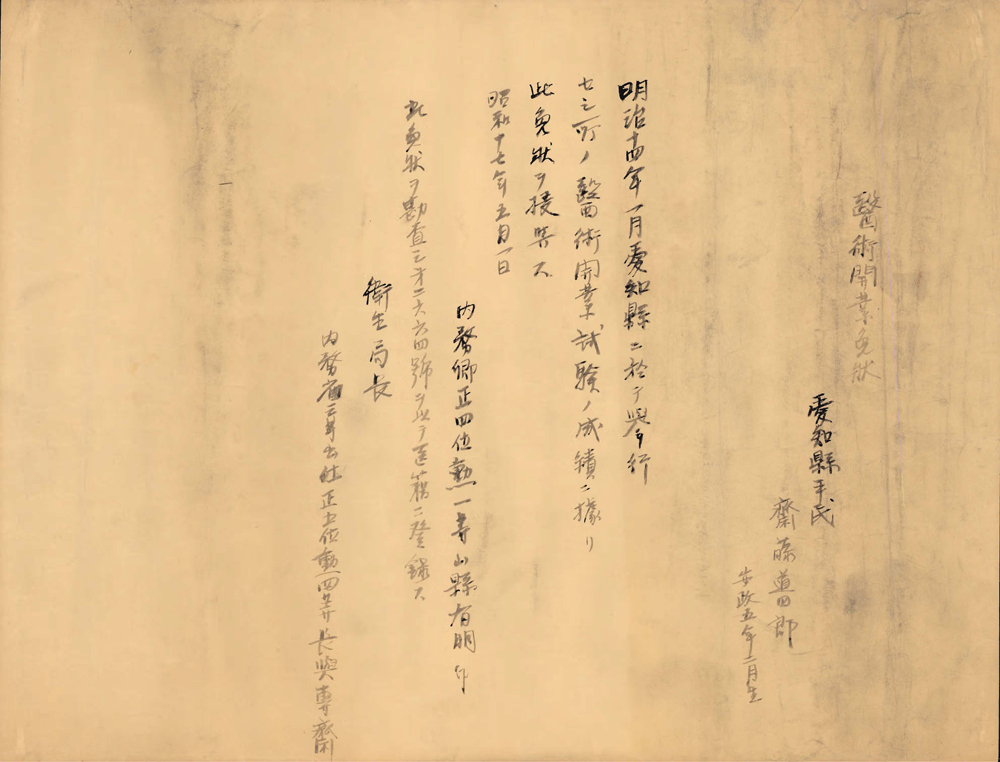 醫術開業免狀
愛知縣平民
齋藤道四郎
安政五年二月生
明治十四年一月愛知縣ニ於テ擧行
セシ所ノ醫術開業試驗ノ成績ニ據リ
此免狀ヲ授與ス
昭和十七年五月一日
内務卿正四位勲一等山縣有朋印
此免狀ヲ勘査シ第二六四號ヲ以テ醫籍ニ登録ス
衛生局長
内務省三等出仕正五位勲四等長與專齋